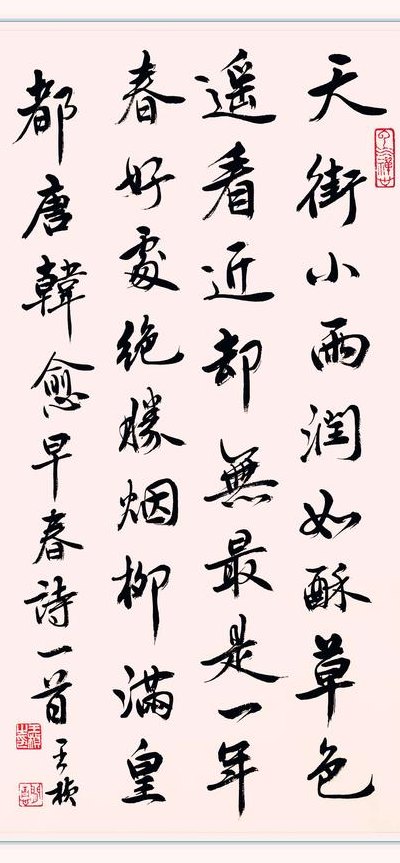 天街小雨潤如酥草色
遥看近却無最是一年
春好處絶勝烟柳滿皇
都唐韓愈早春詩一首
王